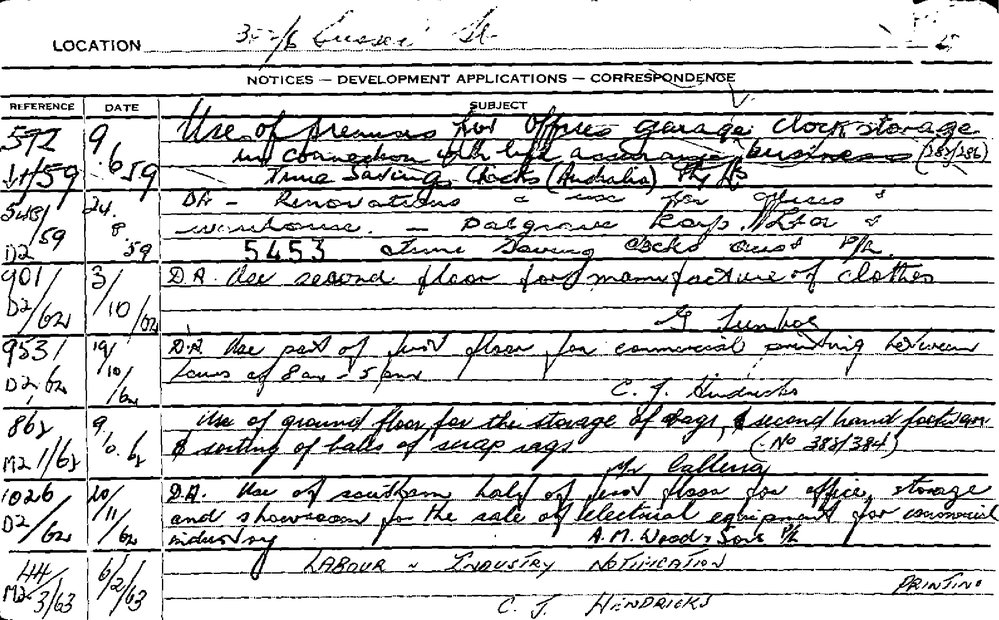 LOCATION St.
NOTICES — DEVELOPMENT APPLICATIONS — CORRESPONDENCE
REFERENCE DATE SUBJECT
592 9 Use of premises for Offices garage clock storage
6 in connection with life assurance business (382/386)
11/59 59 Time Saving Clocks (Australia) Pty Ltd
548 24. DA - Renovations & use for offices &
/59 8 warehouse. - Dalgrave Corp. &
D2 59 5453 Time Saving Clocks Aust P/L.
901 3/ D.A. Use second floor for manufacture of clothes
D2/62 10/62 G
953/ 19/ D.A. Use part of first floor for commercial printing between
D2/62 10/62 hours of 8 am - 5 pm
C. J. Hendricks
862 9 Use of ground floor for the storage of bags, & second hand
M2 1/62 & sorting of bales of scrap rags (No 382/384)
Mr
1026 20/ D.A. Use of southern half of first floor for office, storage
D2/62 11/62 and showroom for the sale of electrical equipment for commercial
industry A.M. Wood & Sons P/L
44 6/2/63 LABOUR & INDUSTRY NOTIFICATION
M2 3/63 PRINTING
C. J. HENDRICKS